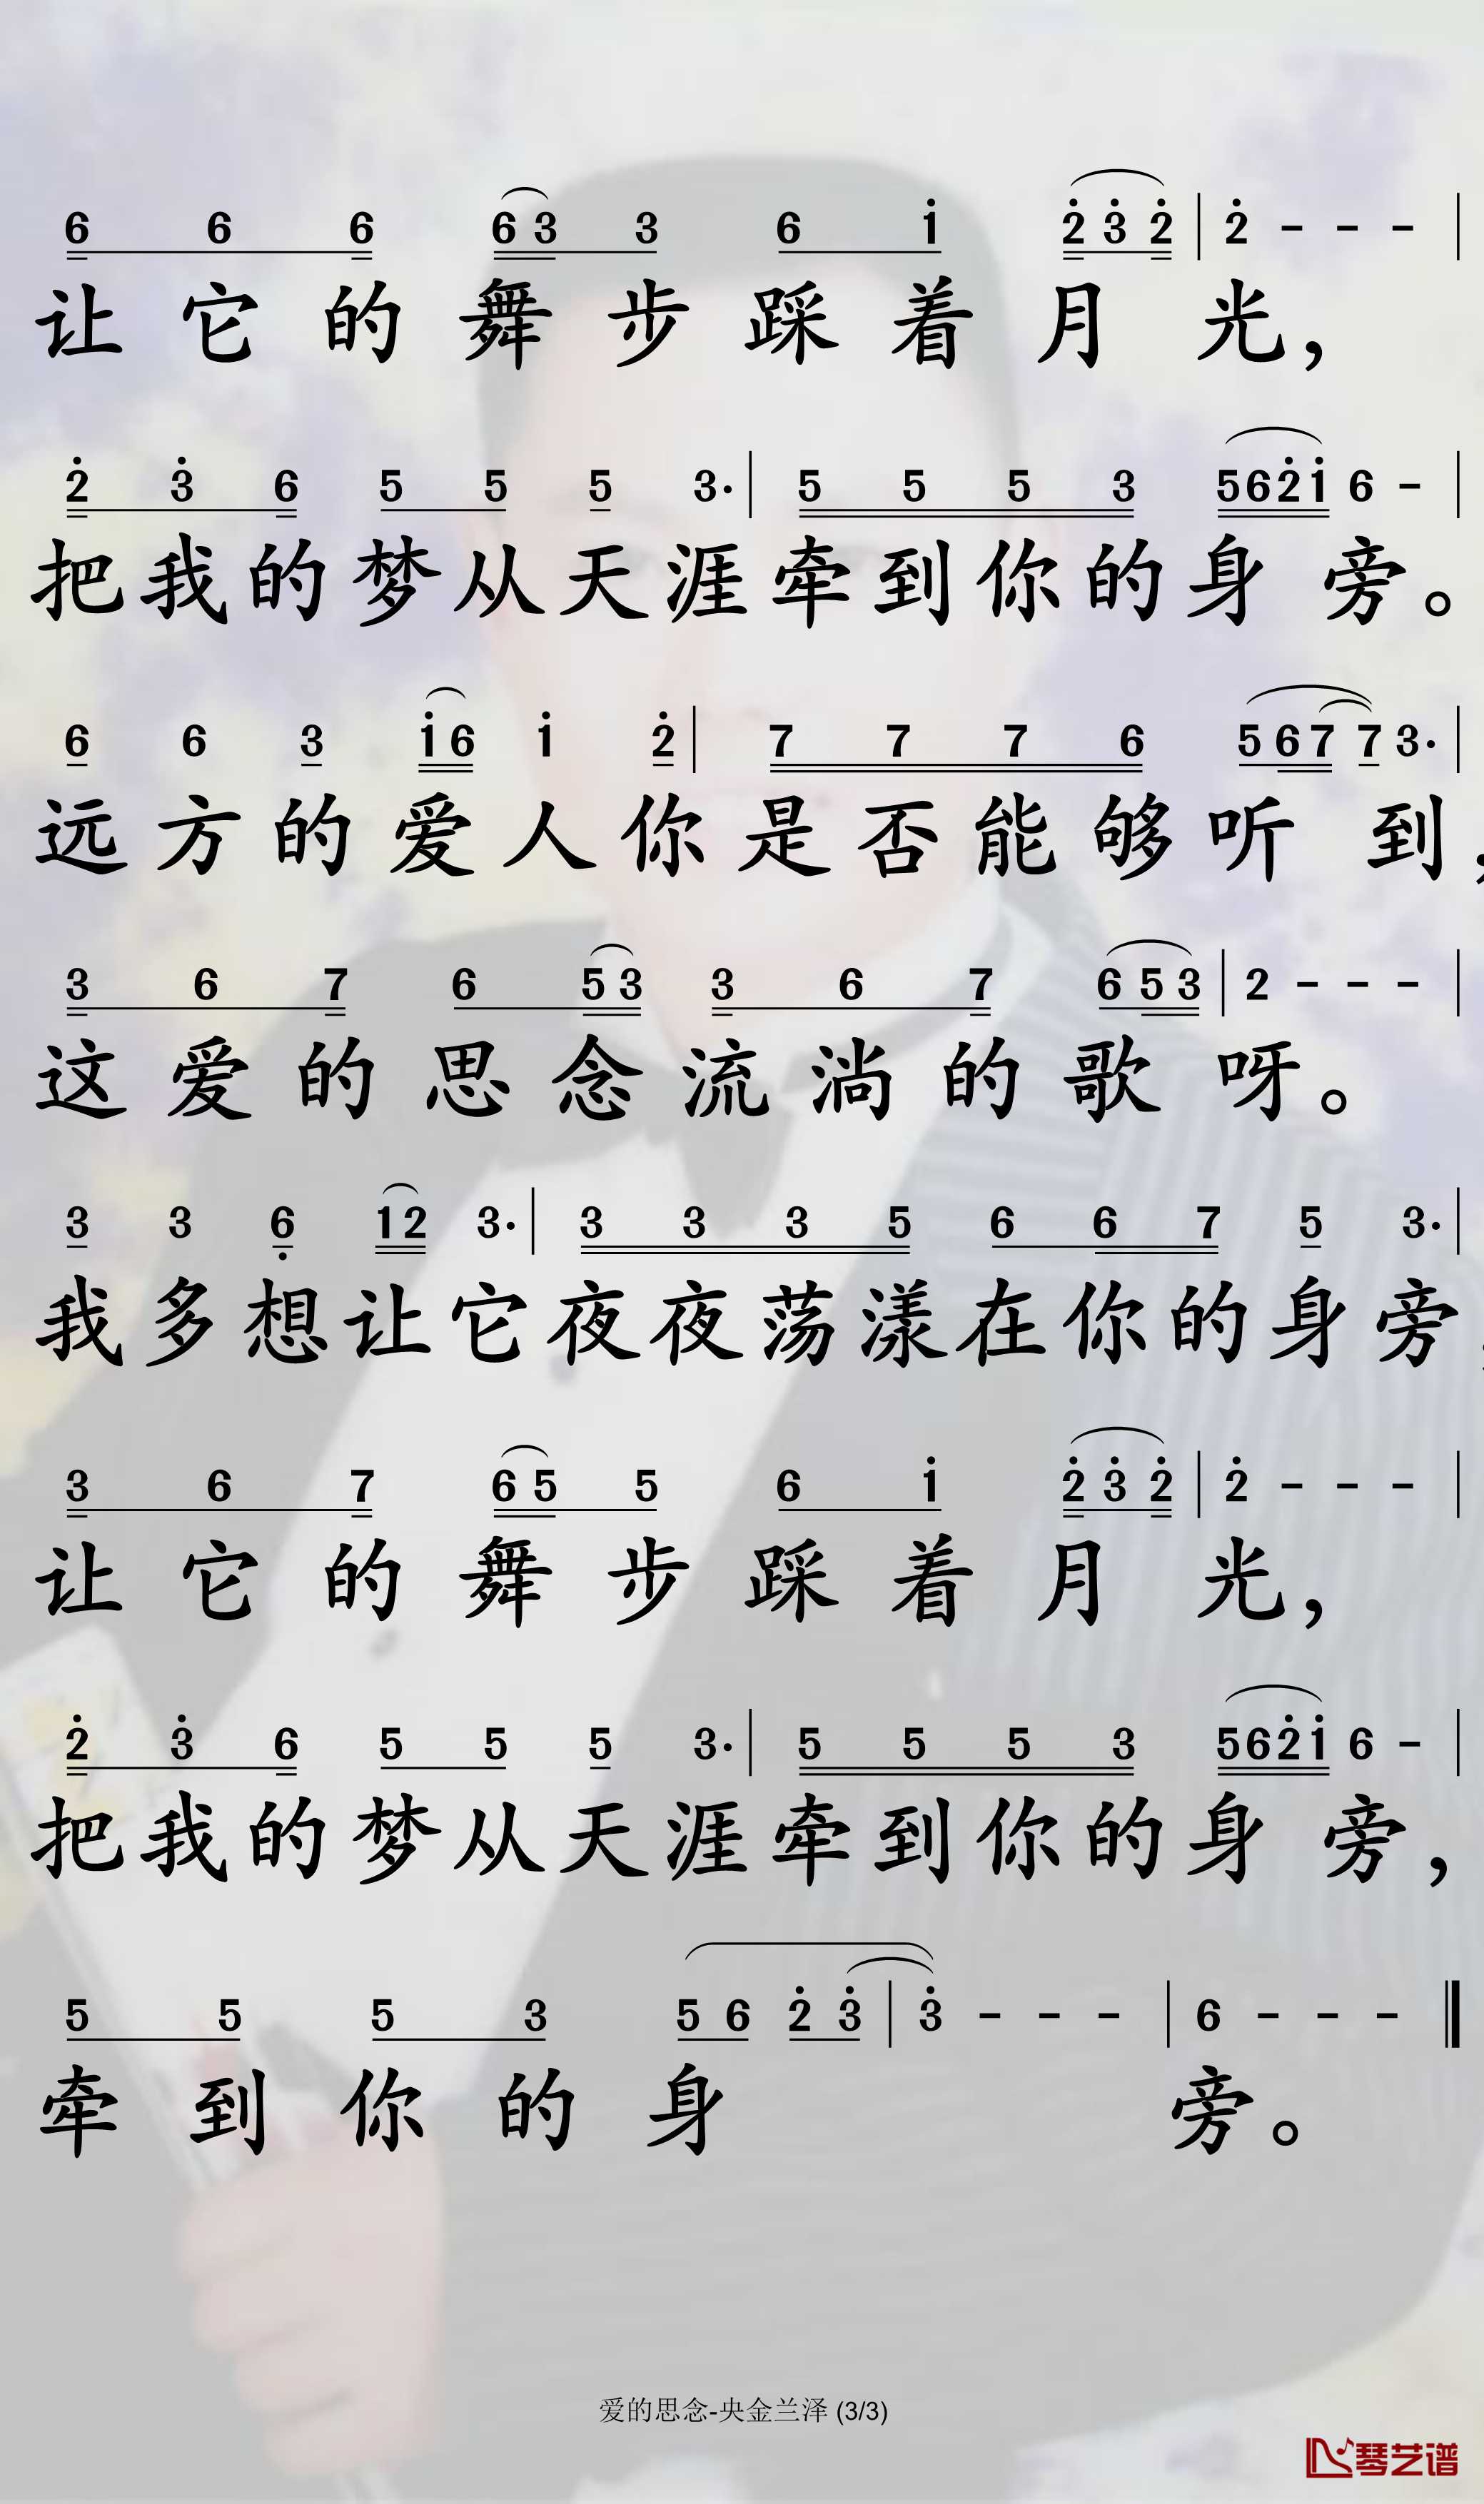 6 6 6 6 3 3 6 1̇ 2̇ 3̇ 2̇ | 2̇ - - - |
让它的舞步踩着月光，
2̇ 3̇ 6 5 5 5 3· | 5 5 5 3 5 6 2̇ 1̇ 6 - |
把我的梦从天涯牵到你的身旁。
6 6 3 1̇ 6 1̇ 2̇ | 7 7 7 6 5 6 7 7 3· |
远方的爱人你是否能够听到，
3 6 7 6 5 3 3 6 7 6 5 3 | 2 - - - |
这爱的思念流淌的歌呀。
3 3 6̣ 1 2 3· | 3 3 3 5 6 6 7 5 3· |
我多想让它夜夜荡漾在你的身旁，
3 6 7 6 5 5 6 1̇ 2̇ 3̇ 2̇ | 2̇ - - - |
让它的舞步踩着月光，
2̇ 3̇ 6 5 5 5 3· | 5 5 5 3 5 6 2̇ 1̇ 6 - |
把我的梦从天涯牵到你的身旁，
5 5 5 3 5 6 2̇ 3̇ | 3̇ - - - | 6 - - - ‖
牵到你的身旁。
爱的思念-央金兰泽 (3/3)
琴艺谱